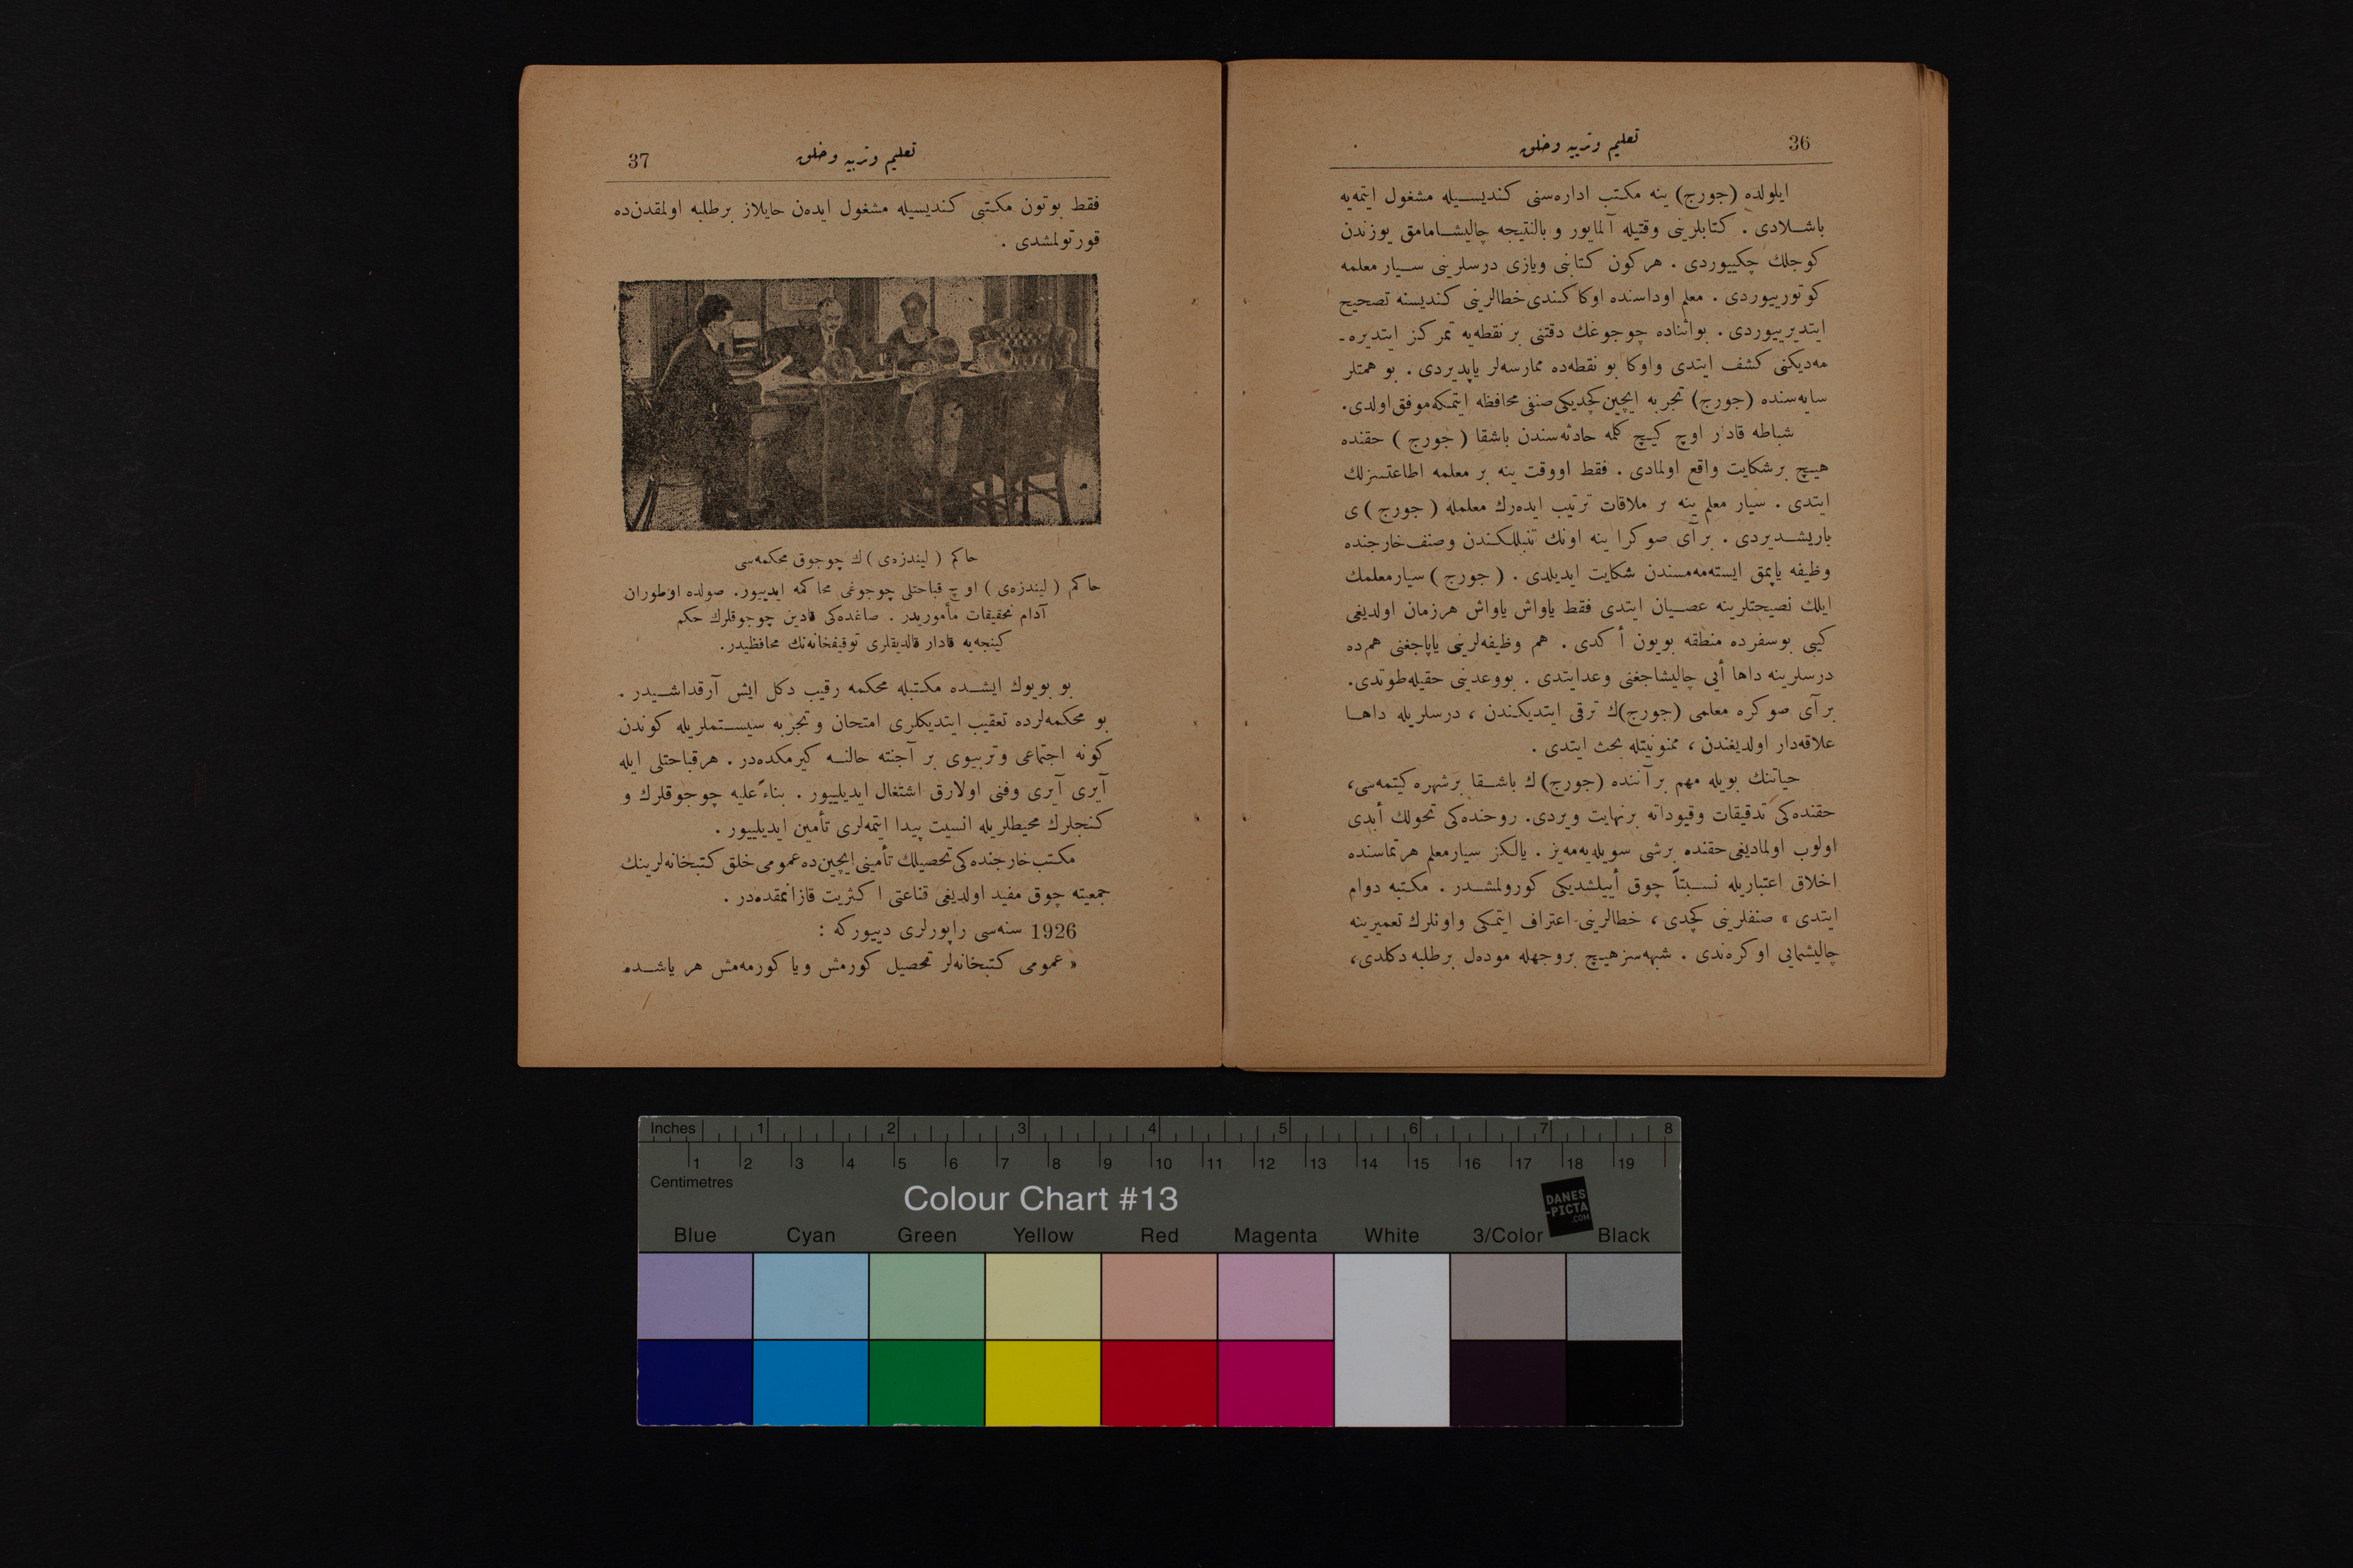 36
تعلیم وتربیه وخلق
ایلولده (جورج) ینه مکتب اداره‌سنی کندیسیله مشغول ایتمه‌یه
باشلادی . کتابلرینی وقتیله آلمایور و بالنتیجه چالیشامامق یوزندن
کوجلك چکییوردی . هرکون کتابنی ویازی درسلرینی سیار معلمه
کوتورییوردی . معلم اوداسنده اوکا کندی خطالرینی کندیسنه تصحیح
ایتدیرییوردی . بواثناده چوجوغك دقتنی بر نقطه‌یه تمرکز ایتدیره -
مه‌دیکنی کشف ایتدی واوکا بو نقطه‌ده ممارسه‌لر یاپدیردی . بو همتلر
سایه‌سنده (جورج) تجربه ایچین کچدیکی صنفی محافظه ایتمکه موفق اولدی.
شباطه قادار اوچ کیچ کلمه حادثه‌سندن باشقا (جورج) حقنده
هیچ برشکایت واقع اولمادی . فقط اووقت ینه بر معلمه اطاعتسزلك
ایتدی . سیار معلم ینه بر ملاقات ترتیب ایده‌رك معلمله (جورج) ی
باریشدیردی . برآی صوکرا ینه اونك تنبللکندن وصنف خارجنده
وظیفه یاپمق ایسته‌مه‌مسندن شکایت ایدیلدی . (جورج) سیارمعلمك
ایلك نصیحتلرینه عصیان ایتدی فقط یاواش یاواش هرزمان اولدیغی
کیبی بوسفرده منطقه بویون أکدی . هم وظیفه‌لرینی یاپاجغنی هم‌ده
درسلرینه داها أیی چالیشاجغنی وعدایتدی . بووعدینی حقیله طوتدی.
برآی صوکره معلمی (جورج)ك ترقی ایتدیکندن ، درسلریله داها
علاقه‌دار اولدیغندن ، ممنونیتله بحث ایتدی .
حیاتنك بویله مهم برآننده (جورج)ك باشقا برشهره کیتمه‌سی،
حقنده‌کی تدقیقات وقیوداته برنهایت ویردی. روحنده‌کی تحولك أبدی
اولوب اولمادیغی حقنده برشی سویلیه‌مه‌یز . یالکز سیارمعلم هرتماسنده
اخلاق اعتباریله نسبتاً چوق أییلشدیکی کورولمشدر . مکتبه دوام
ایتدی » صنفلرینی کچدی ، خطالرینی اعتراف ایتمکی واونلرك تعمیرینه
چالیشمایی اوکره‌ندی . شبهه‌سزهیچ بروجهله موده‌ل برطلبه دکلدی،
37
تعلیم وتربیه وخلق
فقط بوتون مکتبی کندیسیله مشغول ایده‌ن حایلاز برطلبه اولمقدن‌ده
قورتولمشدی .
حاکم ( لیندزه‌ی ) ك چوجوق محکمه‌سی
حاکم ( لیندزه‌ی ) اوچ قباحتلی چوجوغی محاکمه ایدییور. صولده اوطوران
آدام تحقیقات مأموریدر . صاغده‌کی قادین چوجوقلرك حکم
کینجه‌یه قادار قالدیقلری توقیفخانه‌نك محافظیدر.
بو بویوك ایشده مکتبله محکمه رقیب دکل ایش آرقداشیدر .
بو محکمه‌لرده تعقیب ایتدیکلری امتحان وتجربه سیستملریله کوندن
کونه اجتماعی وتربیوی بر آجنته حالنه کیرمکده‌در . هرقباحتلی ایله
آیری آیری وفنی اولارق اشتغال ایدیلییور . بناءً علیه چوجوقلرك و
کنجلرك محیطلریله انسیت پیدا ایتمه‌لری تأمین ایدیلییور .
مکتب خارجنده‌کی تحصیلك تأمینی ایچین‌ده عمومی خلق کتبخانه‌لرینك
جمعیته چوق مفید اولدیغی قناعتی اکثریت قازانمقده‌در .
1926 سنه‌سی راپورلری دییورکه :
« عمومی کتبخانه‌لر تحصیل کورمش ویا کورمه‌مش هر یاشده
Inches 1 2 3 4 5 6 7 8
1 2 3 4 5 6 7 8 9 10 11 12 13 14 15 16 17 18 19
Centimetres
Colour Chart #13
DANES
-PICTA
.COM
Blue Cyan Green Yellow Red Magenta White 3/Color Black